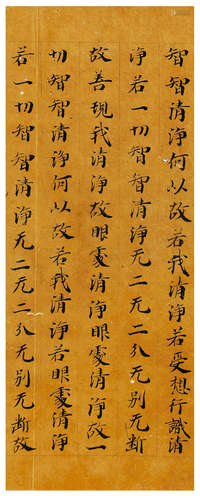 智智清淨何以故若我清淨若受想行識清
淨若一切智智清淨无二无二分无別无斷
故善現我清淨故眼處清淨眼處清淨故一
切智智清淨何以故若我清淨若眼處清淨
若一切智智清淨无二无二分无別无斷故